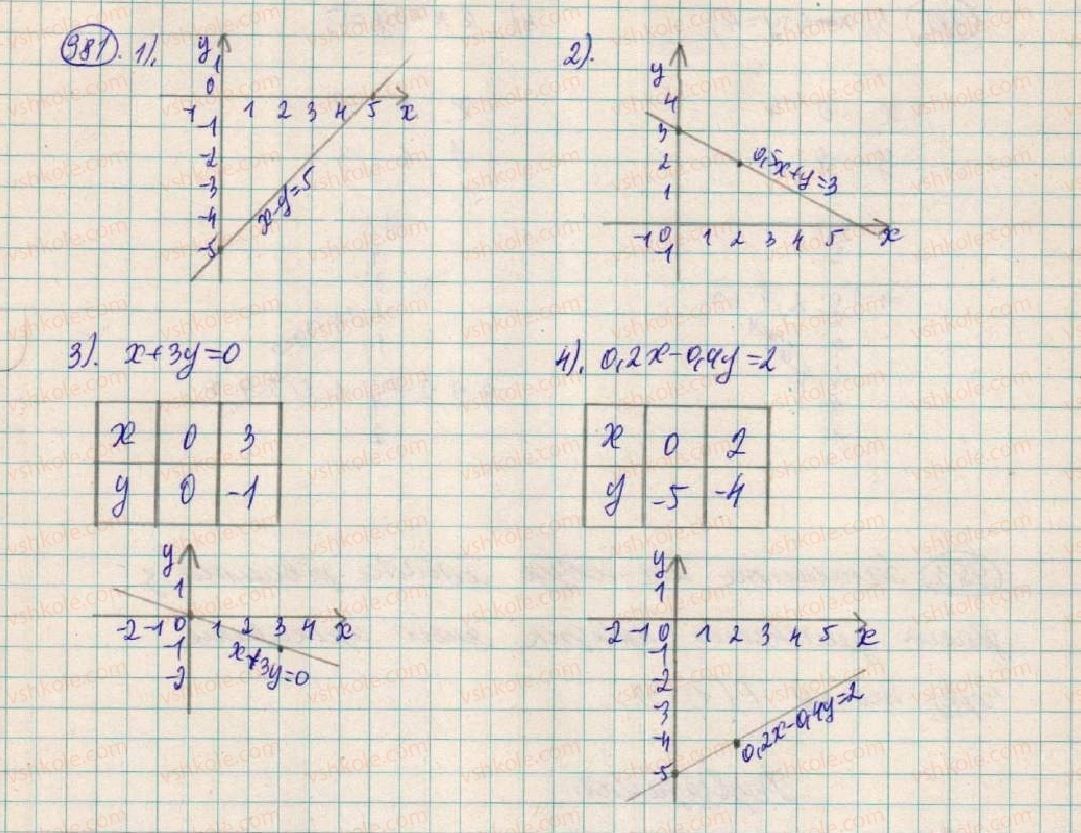 981. 1).
y
1
0
-1 1 2 3 4 5 x
-1
-2
-3
-4
-5
x-y=5
2).
y
4
3
2
1
-1 0 1 2 3 4 5 x
-1
0,5x+y=3
3). x+3y=0
x 0 3
y 0 -1
y
1
-2 -1 0 1 2 3 4 x
-1
-2
x+3y=0
4). 0,2x-0,4y=2
x 0 2
y -5 -4
y
1
-2 -1 0 1 2 3 4 5 x
-1
-2
-3
-4
-5
0,2x-0,4y=2
vshkole.com